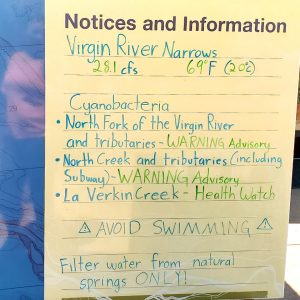 Notices and Information
Virgin River Narrows
28.1 cfs 69°F (20°C)
Cyanobacteria
• North Fork of the Virgin River
and tributaries - WARNING Advisory
• North Creek and tributaries (including
Subway) - WARNING Advisory
• La Verkin Creek - Health Watch
⚠ AVOID SWIMMING ⚠
Filter water from natural
springs ONLY!